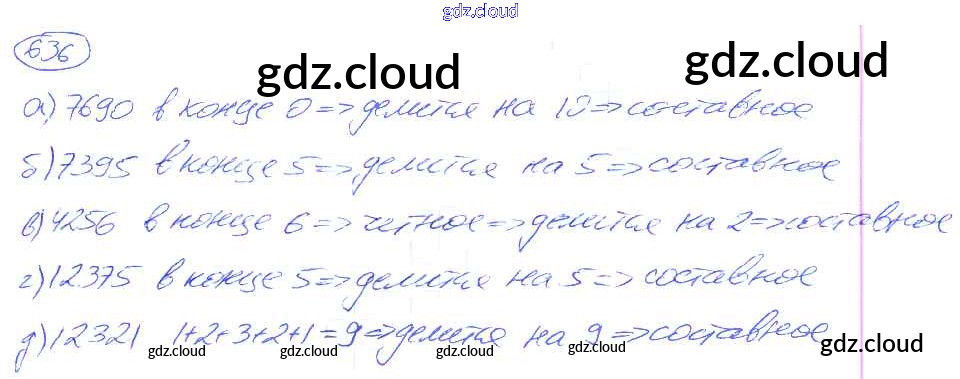 gdz.cloud
636
gdz.cloud gdz.cloud
а) 7690 в конце 0 => делится на 10 => составное
б) 7395 в конце 5 => делится на 5 => составное
в) 4256 в конце 6 => четное => делится на 2 => составное
г) 12375 в конце 5 => делится на 5 => составное
д) 12321 1+2+3+2+1 = 9 => делится на 9 => составное
gdz.cloud gdz.cloud gdz.cloud gdz.cloud gdz.cloud